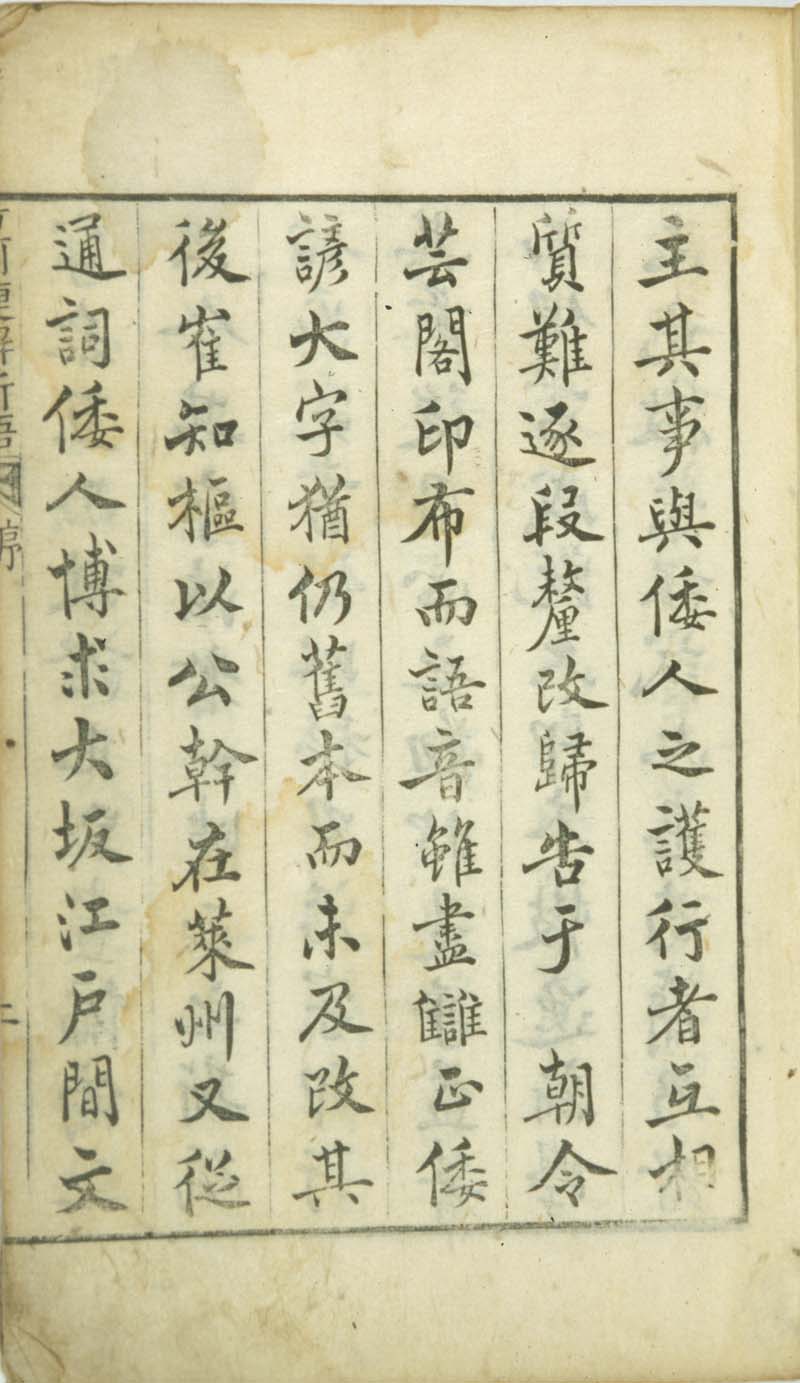 主其事與倭人之護行者互相
質難逐段釐改歸告于　朝令
芸閣印布而語音雖盡讎正倭
諺大字猶仍舊本而未及改其
後崔知樞以公幹在萊州又從
通詞倭人博求大坂江戶間文